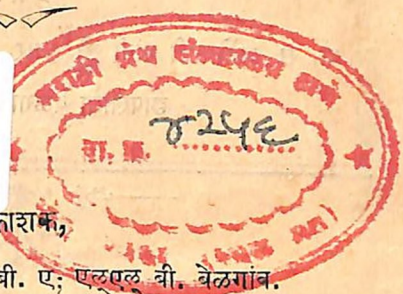 मराठी ग्रंथ संग्रहालय ठाणे
वा. क्र. ४२५६
काशक,
बी. ए; एलएल बी. बेळगांव.